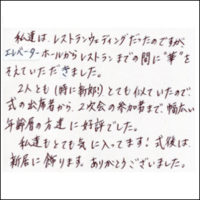 私達は、レストランウェディングだったのですが、
エレベーターホールからレストランまでの間に"華"を
そえていただきました。
2人とも(特に新郎!)とても似ていたので
式の出席者から、2次会の参加者まで、幅広い
年齢層の方達に好評でした。
私達もとても気に入ってます!式後は、
新居に飾ります。ありがとうございました。